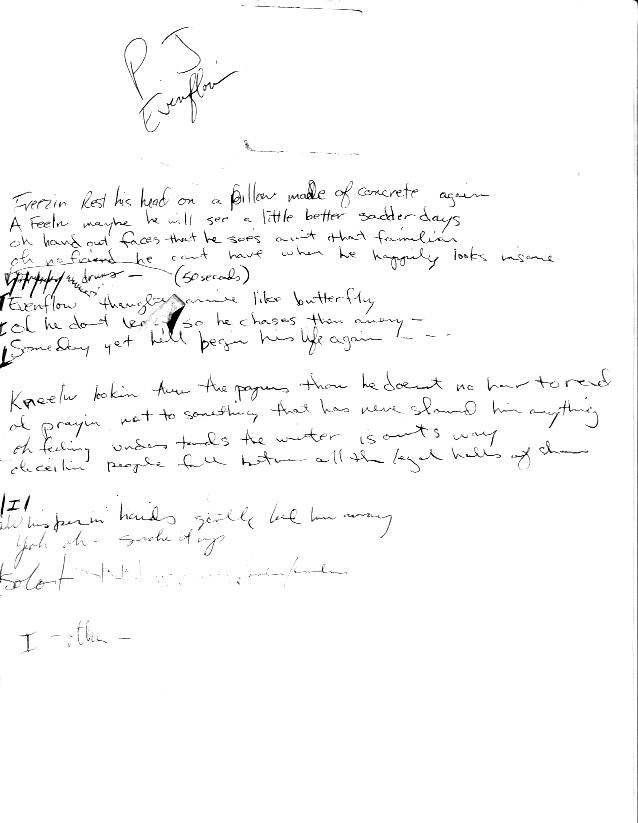 P J
Evenflow
Freezin Rest his head on a pillow made of concrete again
A Feelin maybe he will see a little better sadder days
oh hand out faces that he sees aint that familiar
oh he cant have when he happily looks insane
drums - (50 seconds)
Evenflow arrive like butterfly
he dont so he chases them away -
Someday yet he'll begin his life again - - - -
Kneelin lookin thru the papers thou he doesnt no how to read
oh prayin not to something that has never showed him anything
oh feeling understands the winter is on its way
people fall between all the legal halls of shame
I
Whisperin hands gently lead him away
Yeah oh -
Solo
I - other -